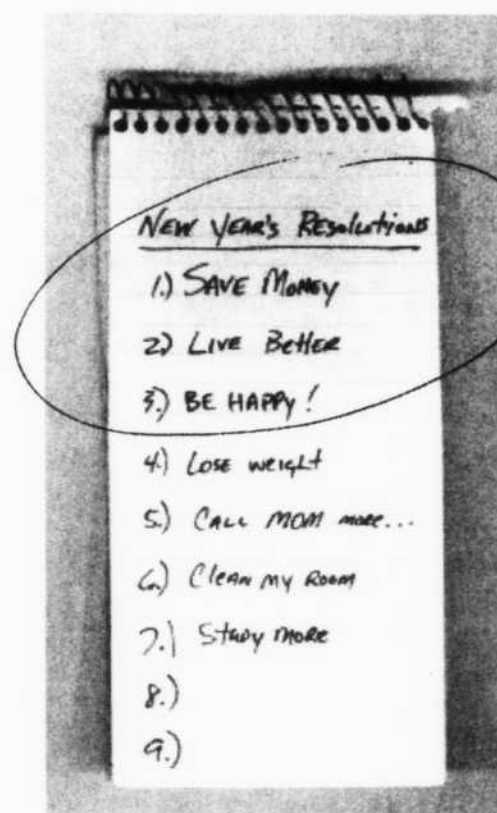 New Year's Resolutions
1.) Save Money
2.) Live Better
3.) BE HAPPY!
4.) Lose weight
5.) Call MOM more...
6.) Clean my Room
7.) Study more
8.)
9.)